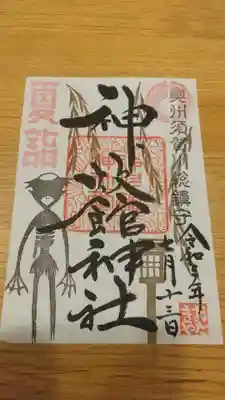 奥州須賀川総鎮守
夏詣
神炊館神社
令和五年
七月十三日